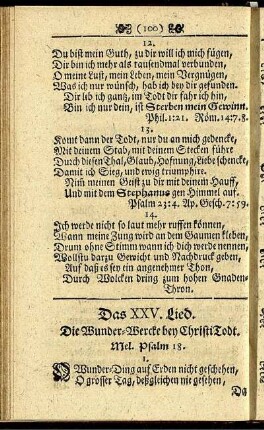 (100)
12.
Du bist mein Guth, zu dir will ich mich fügen,
Dir bin ich mehr als tausendmal verbunden,
O meine Lust, mein Leben, mein Vergnügen,
Was ich nur wünsch, hab ich bey dir gefunden.
Dir leb ich gantz, im Todt dir fahr ich hin,
Bin ich nur dein, ist Sterben mein Gewinn.
Phil.1:21. Röm.14:7.8.
13.
Komt dann der Todt, nur du an mich gedencke,
Mit deinem Stab, mit deinem Stecken führe
Durch diesen Thal, Glaub, Hofnung, Liebe schencke,
Damit ich Sieg, und ewig triumphire.
Nim̃ meinen Geist zu dir mit deinem Hauff,
Und mit dem Stephanus gen Himmel auf.
Psalm 23:4. Ap. Gesch.7:59.
14.
Ich werde nicht so laut mehr ruffen können,
Wann meine Zung wird an dem Gaumen kleben,
Drum ohne Stimm wann ich dich werde nennen,
Wollstu darzu Gewicht und Nachdruck geben,
Auf daß es sey ein angenehmer Thon,
Durch Wolcken dring zum hohen Gnaden-
Thron.
Das XXV. Lied.
Die Wunder-Wercke bey Christi Todt.
Mel. Psalm 18.
1.
O Wunder-Ding auf Erden nicht geschehen,
O grosser Tag, deßgleichen nie gesehen,
Da